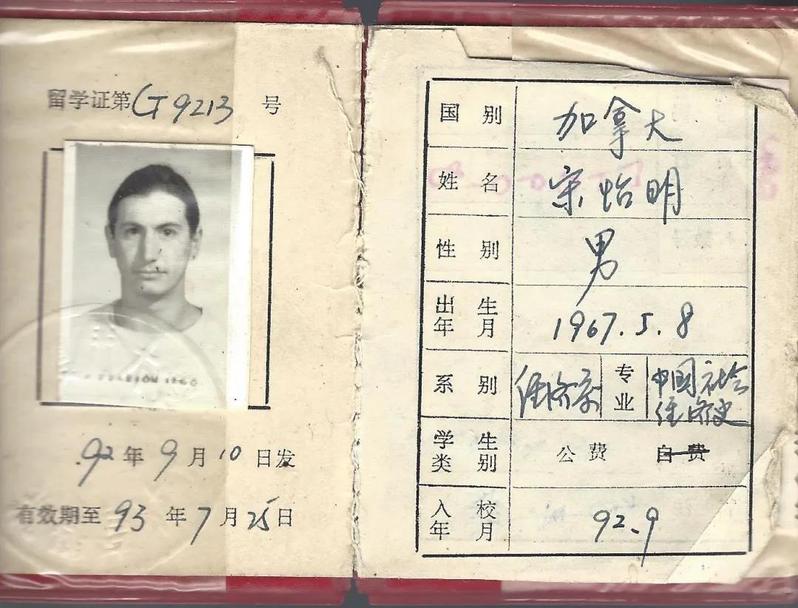 留学证第G9213号
92年9月10日发
有效期至93年7月25日
国别 加拿大
姓名 宋怡明
性别 男
出生年月 1967.5.8
系别 经济系 专业 中国社会经济史
学生类别 公费 自费
入校年月 92.9